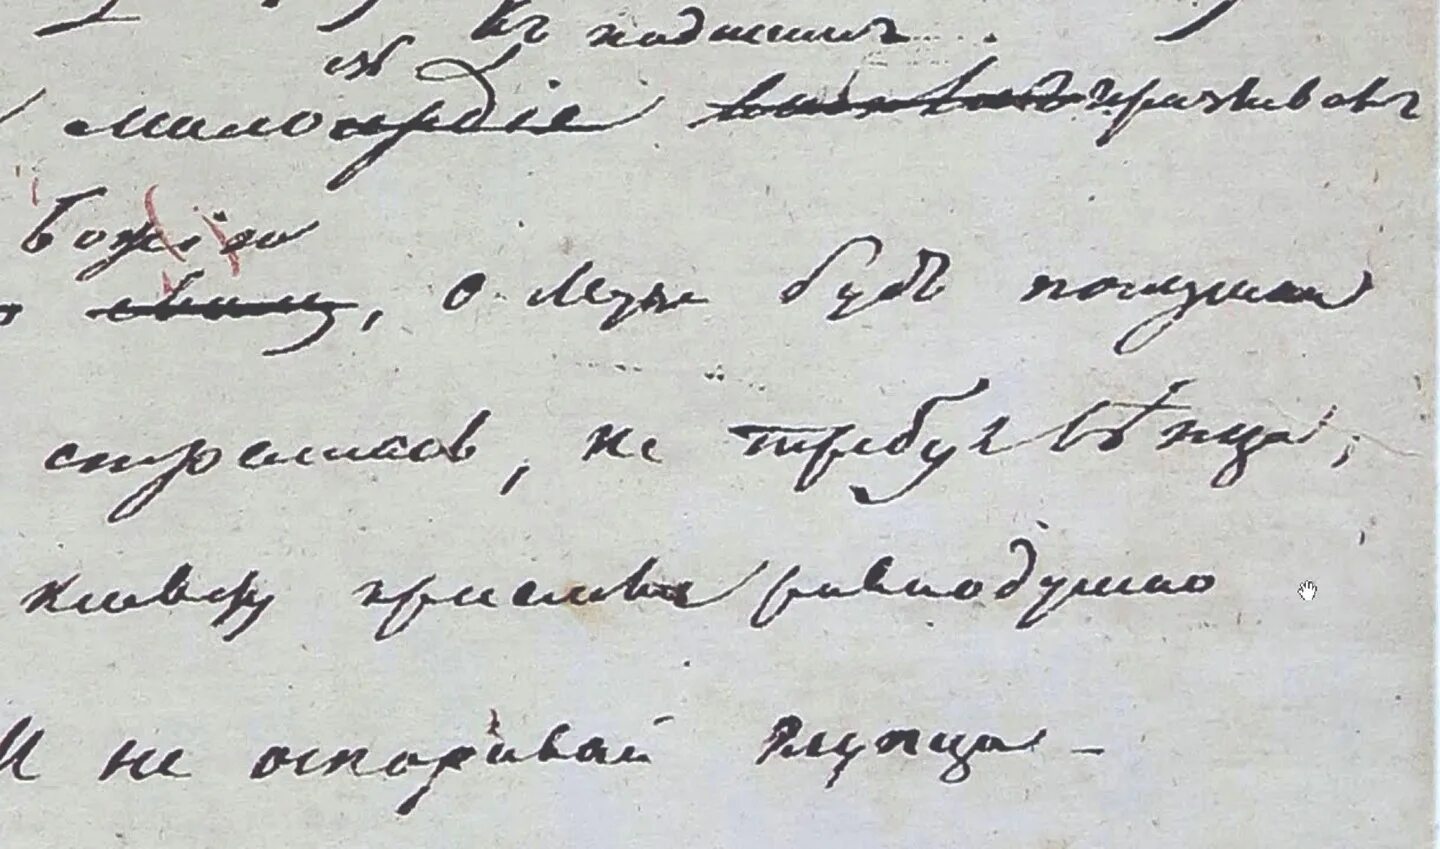 къ падшимъ
милосердіе призывалъ
Божію
, о Муза будь послушна
страшась, не требуя вѣнца;
клевету пріемли равнодушно
И не оспоривай глупца —